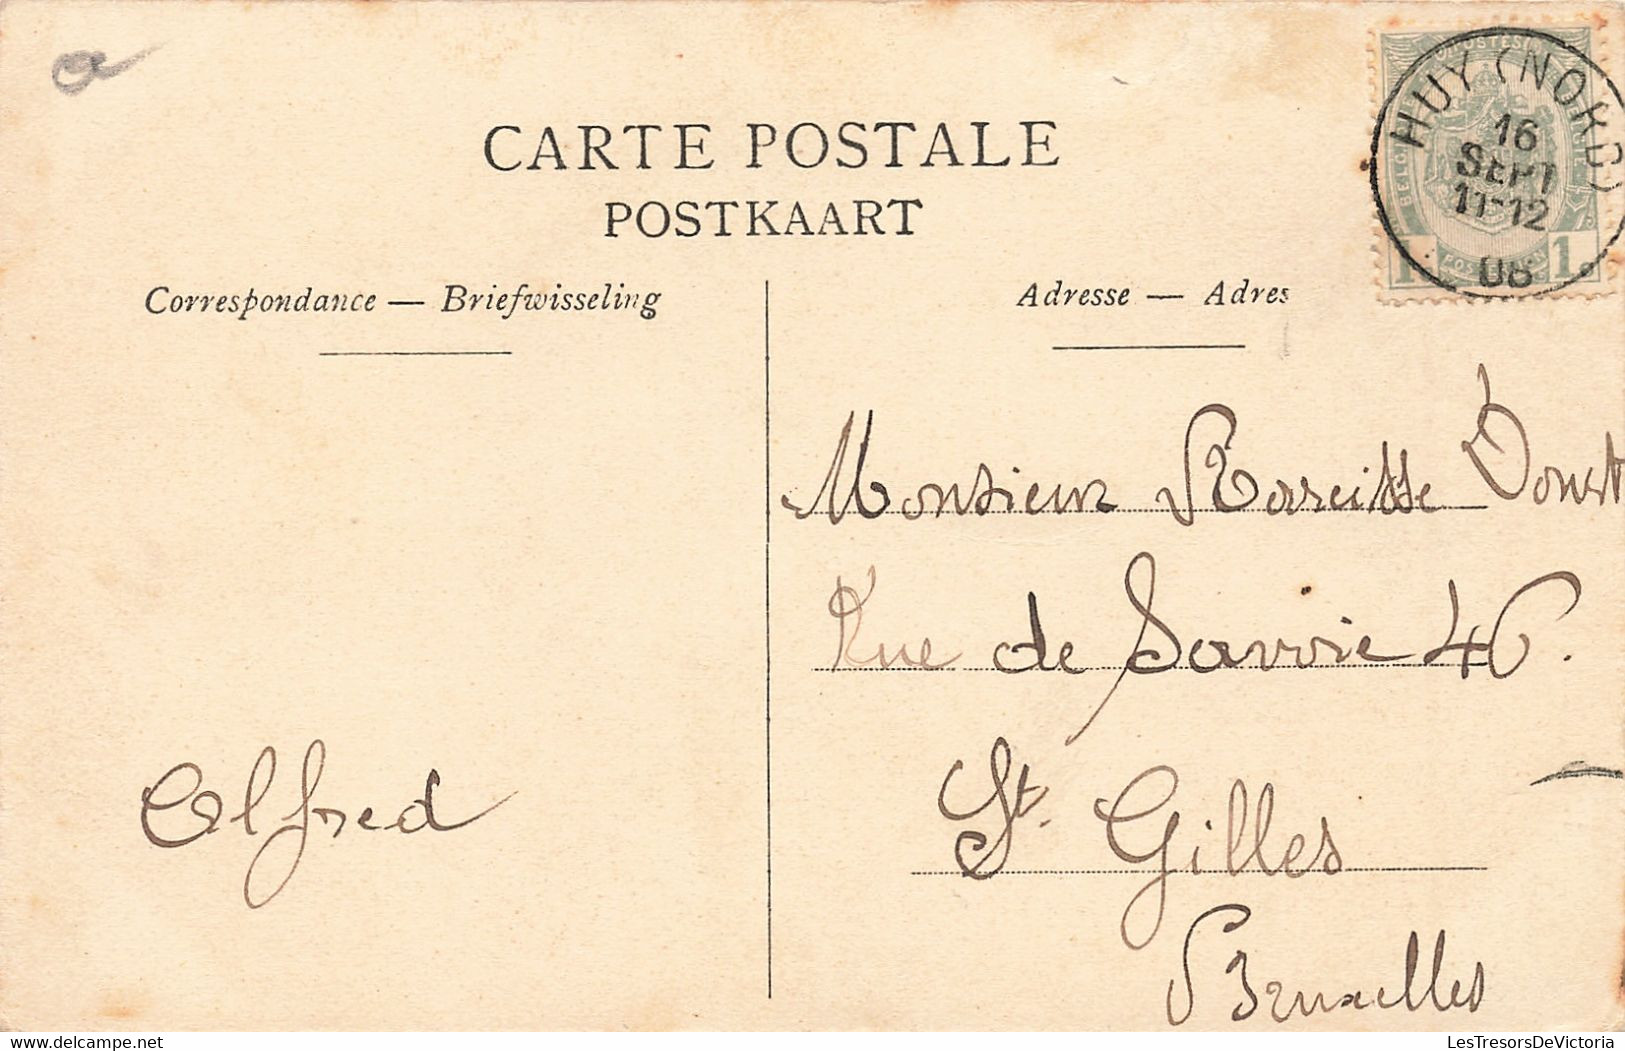 CARTE POSTALE
POSTKAART
Correspondance — Briefwisseling
Adresse — Adres
HUY (NORD)
16
SEPT
11-12
08
1 1
Monsieur Narcisse
Rue de Savoie 46.
St. Gilles
Bruxelles
Alfred
delcampe.net
LesTresorsDeVictoria